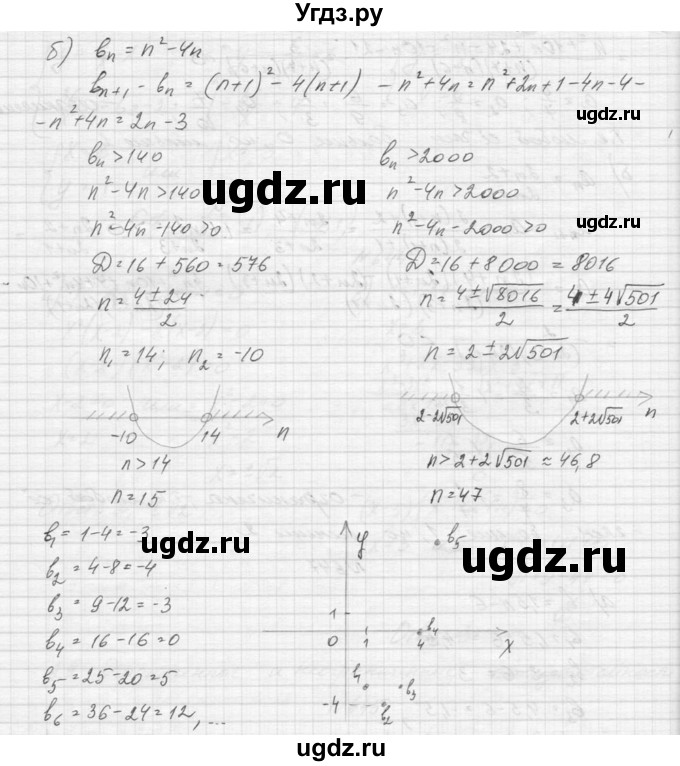 Угдз.ру
б) bₙ = n² - 4n
bₙ₊₁ - bₙ = (n+1)² - 4(n+1) - n² + 4n = n² + 2n + 1 - 4n - 4 -
- n² + 4n = 2n - 3
ugdz.ru
bₙ > 140
n² - 4n > 140
n² - 4n - 140 > 0
D = 16 + 560 = 576
n = (4 ± 24)/2
n₁ = 14; n₂ = -10
-10 14 n
n > 14
n = 15
bₙ > 2000
n² - 4n > 2000
n² - 4n - 2000 > 0
D = 16 + 8000 = 8016
n = (4 ± √8016)/2 = (4 ± 4√501)/2
n = 2 ± 2√501
2-2√501 2+2√501 n
n > 2 + 2√501 ≈ 46,8
n = 47
ugdz.ru
ugdz.ru
ugdz.ru
b₁ = 1 - 4 = -3
b₂ = 4 - 8 = -4
b₃ = 9 - 12 = -3
b₄ = 16 - 16 = 0
b₅ = 25 - 20 = 5
b₆ = 36 - 24 = 12, ...
ugdz.ru
ugdz.ru
y
b₅
1
b₄
0 1 4 x
b₃
-4 b₂
ugdz.ru
ugdz.ru
ugdz.ru